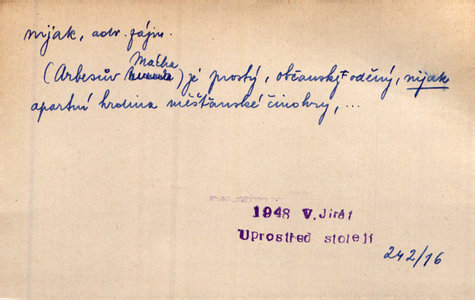 nijak, adv. zájm.
Mácha
(Arbesův) je prostý, občansky oděný, nijak
apartní hrdina měšťanské činohry, ...
1948 V. Jirát
Uprostřed století
242/16